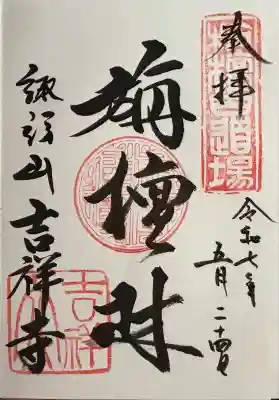 奉拝
道場
令和七年
五月二十四日
栴檀林
諏訪山吉祥寺
吉祥